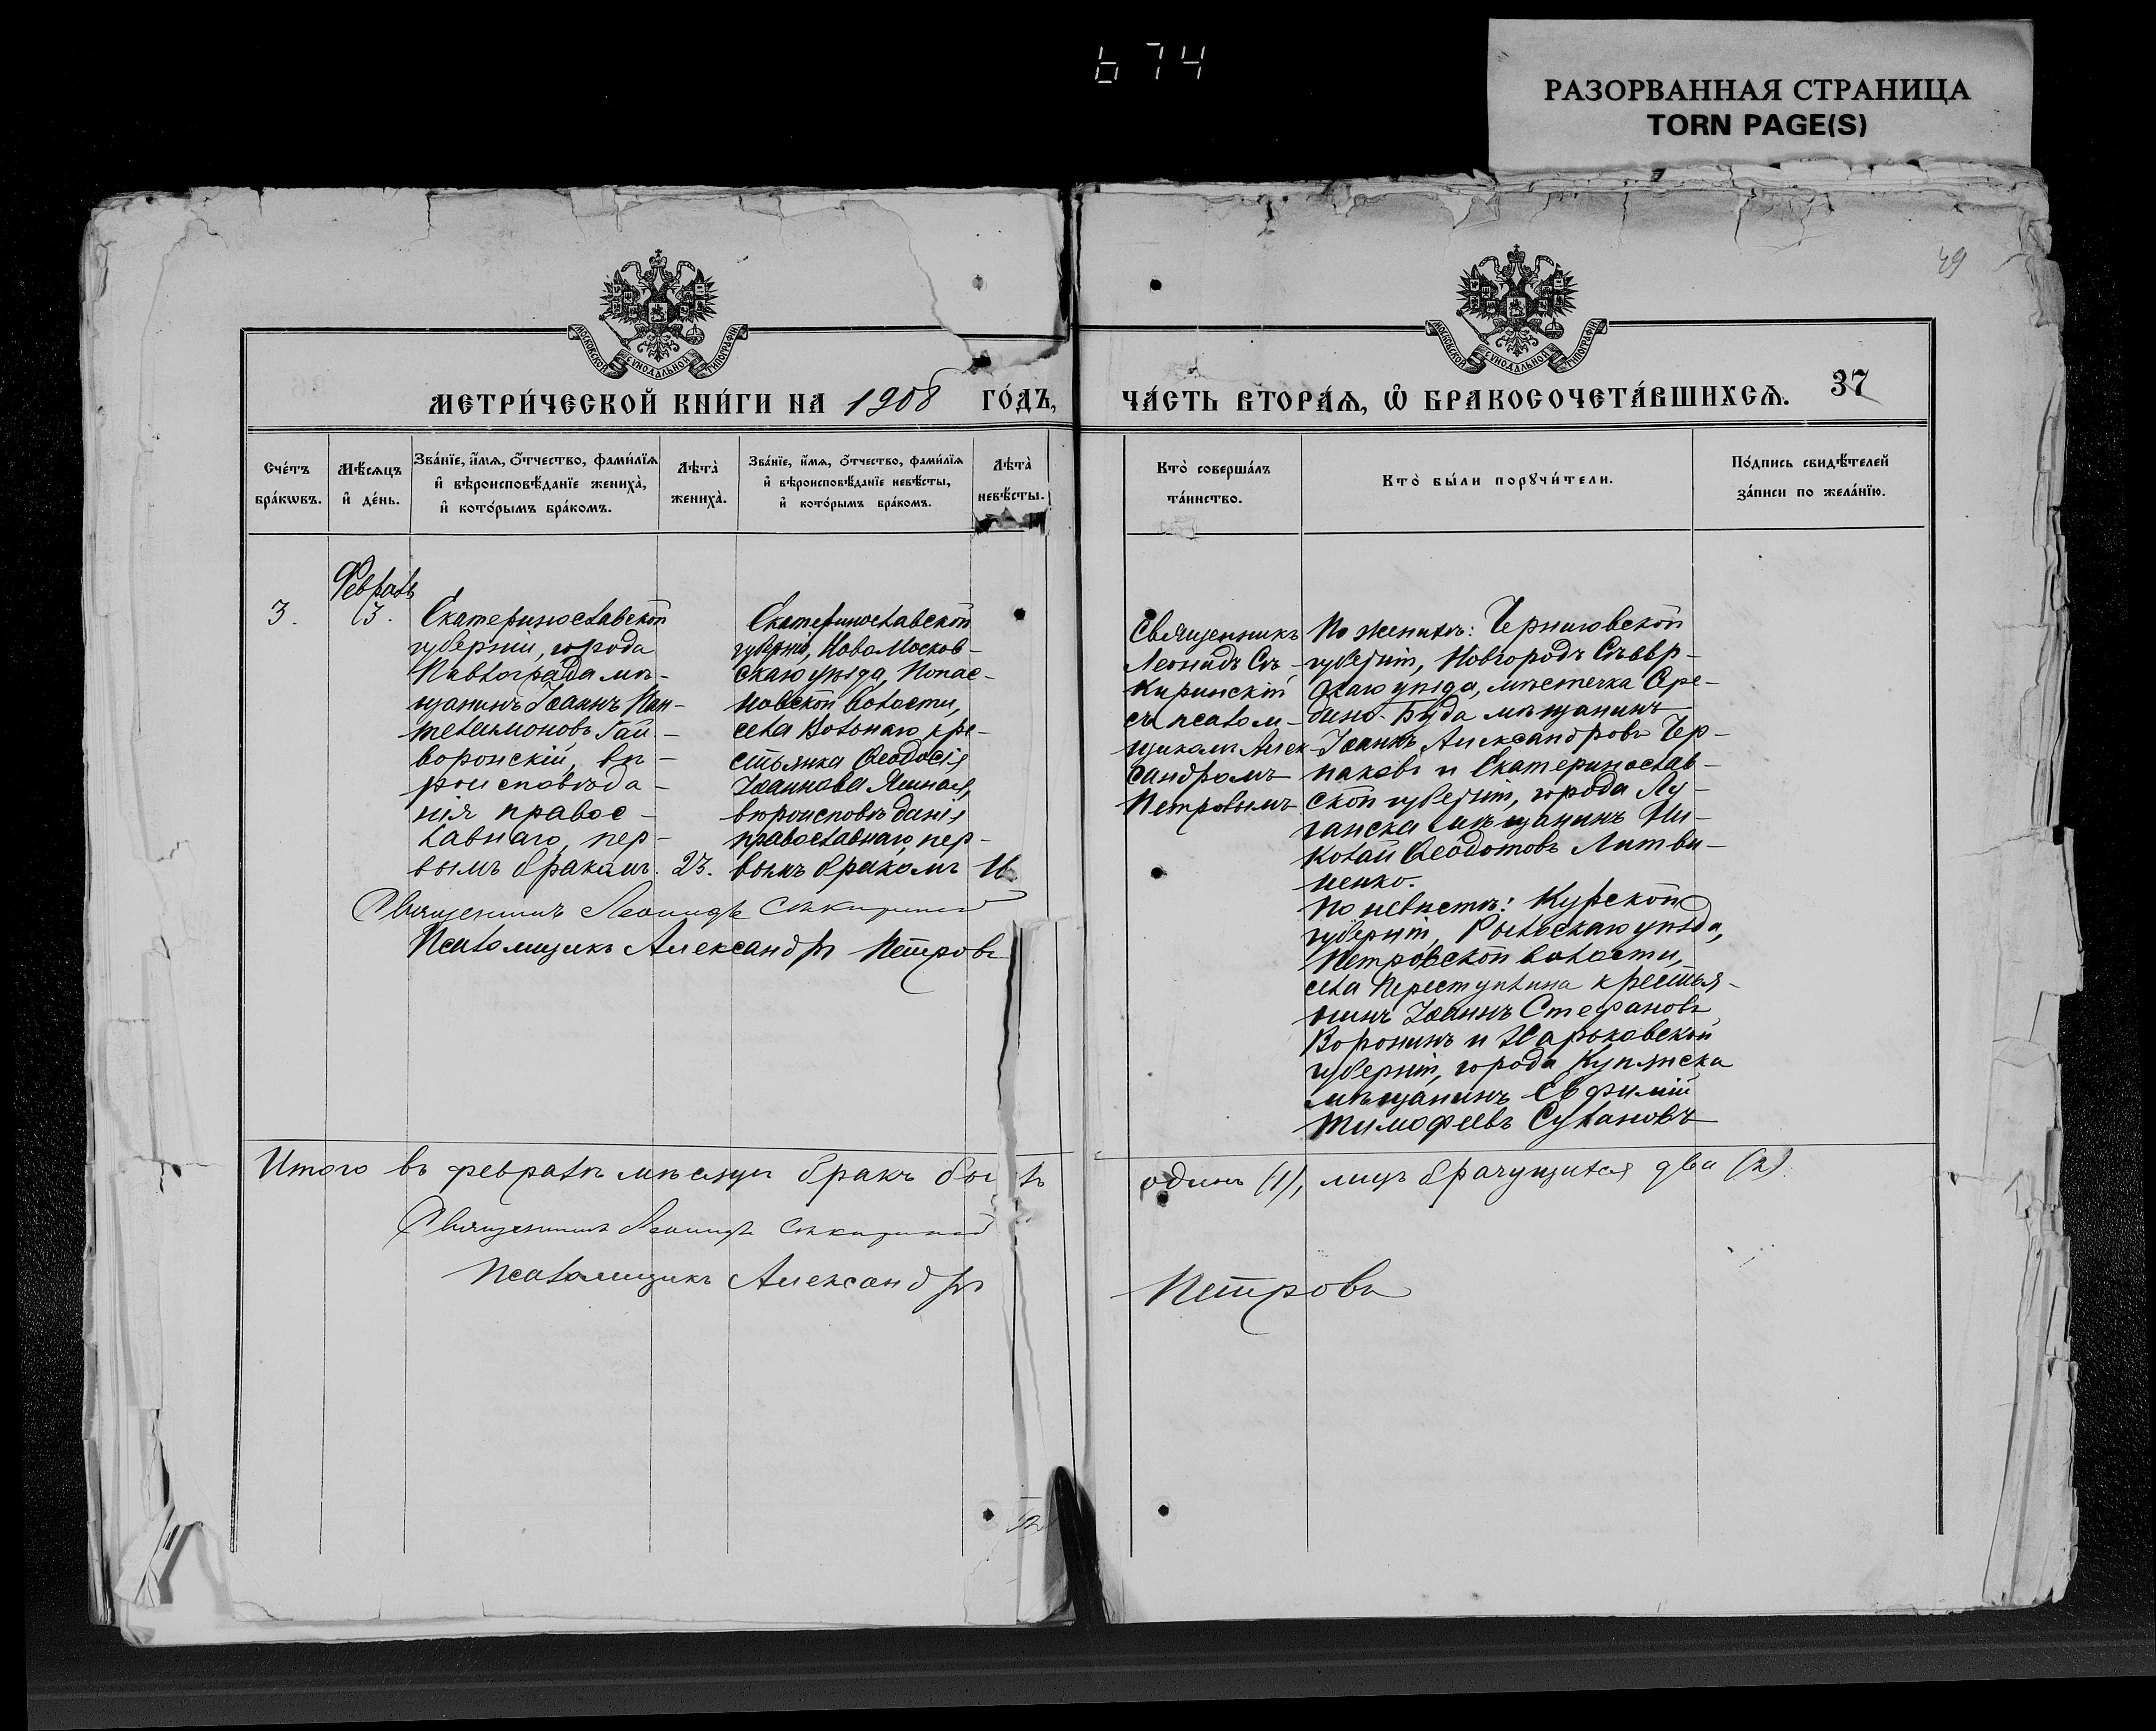 674
РАЗОРВАННАЯ СТРАНИЦА
TORN PAGE(S)
49
МОСКОВСКОЙ СУНОДАЛЬНОЙ ТИПОГРАФІИ
МОСКОВСКОЙ СУНОДАЛЬНОЙ ТИПОГРАФІИ
МЕТРИ́ЧЕСКОЙ КНИ́ГИ НА 1908 ГО́ДЪ,
ЧА́СТЬ ВТОРА́Ѧ, Ѽ БРАКОСОЧЕТА́ВШИХСѦ. 37
Сче́тъ
бра́кѡвъ.
Мѣ́сѧцъ
и҆ де́нь.
Зва́нїе, и҆́мѧ, ѻ҆́тчество, фами́лїѧ
и҆ вѣроисповѣ́данїе жениха̀,
и҆ кото́рымъ бра́комъ.
Лѣта̀
жениха̀.
Зва́нїе, и҆́мѧ, ѻ҆́тчество, фами́лїѧ
и҆ вѣроисповѣ́данїе невѣ́сты,
и҆ кото́рымъ бра́комъ.
Лѣта̀
невѣ́сты.
Кто̀ соверша́лъ
та́инство.
Кто̀ бы́ли порꙋчи́тели.
По́дпись свидѣ́телей
за́писи по жела́нїю.
3.
Февраль
3.
Екатеринославской
губерніи, города
Павлограда мѣ-
щанинъ Іоаннъ Пан-
телеимоновъ Гай-
воронскій, вѣ-
роисповѣда-
нія правос-
лавнаго, пер-
вымъ бракомъ.
23.
Екатеринославской
губерніи, Новомосков-
скаго уѣзда, Попас-
новской волости,
села Вольнаго кре-
стьянка Ѳеодосія
Іоаннова
вѣроисповѣданія
православнаго, пер-
вымъ бракомъ
Священникъ
Леонидъ Сѣ-
киринскій
съ псалом-
щикомъ Алек-
сандромъ
Петровымъ
По женихѣ: Черниговской
губерніи, Новгородъ Сѣвер-
скаго уѣзда, мѣстечка Сре-
дино-Буда мѣщанинъ
Іоаннъ Александровъ Чер-
паковъ и Екатеринослав-
ской губерніи, города Лу-
ганска мѣщанинъ Ни-
колай Ѳеодотовъ Литви-
ненко.
По невѣстѣ: Курской
губерніи, Рыльскаго уѣзда,
Петровской волости,
села Переступлина крестья-
нинъ Іоаннъ Стефановъ
Воронинъ и Харьковской
губерніи, города Купянска
мѣщанинъ Евфимій
Тимофеевъ Сулановъ
Священникъ Леонидъ Сѣкиринскій
Псаломщикъ Александръ Петровъ
Итого въ февралѣ мѣсяцѣ бракъ былъ одинъ (1), лицъ брачущихся два (2).
Священникъ Леонидъ Сѣкиринскій
Псаломщикъ Александръ Петровъ